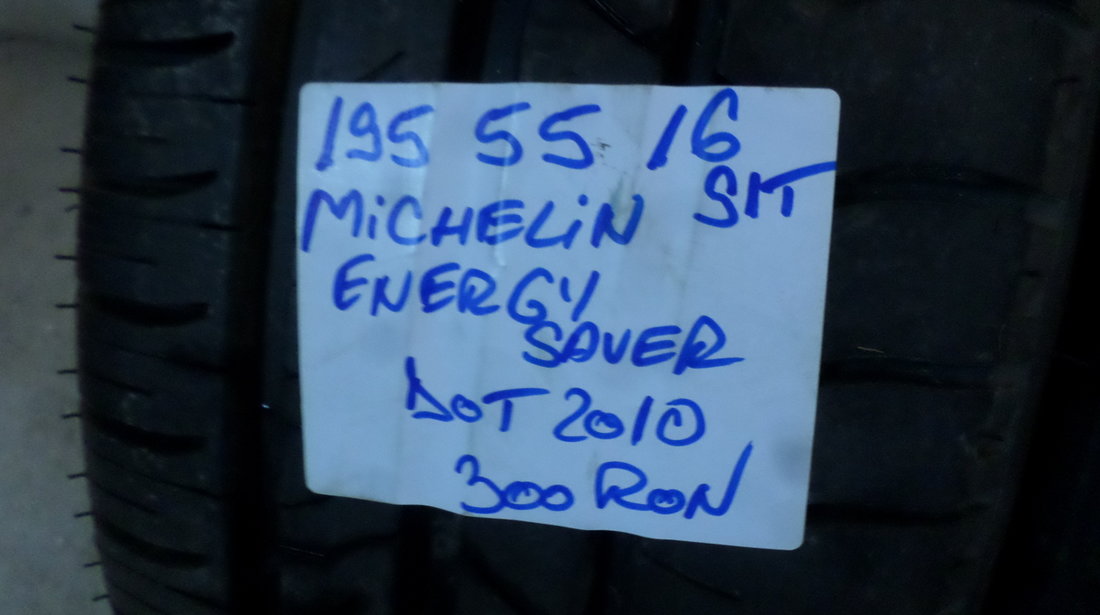 195 55 16
MiCHELiN SIT
ENERGY
SAVER
DOT 2010
300 RON